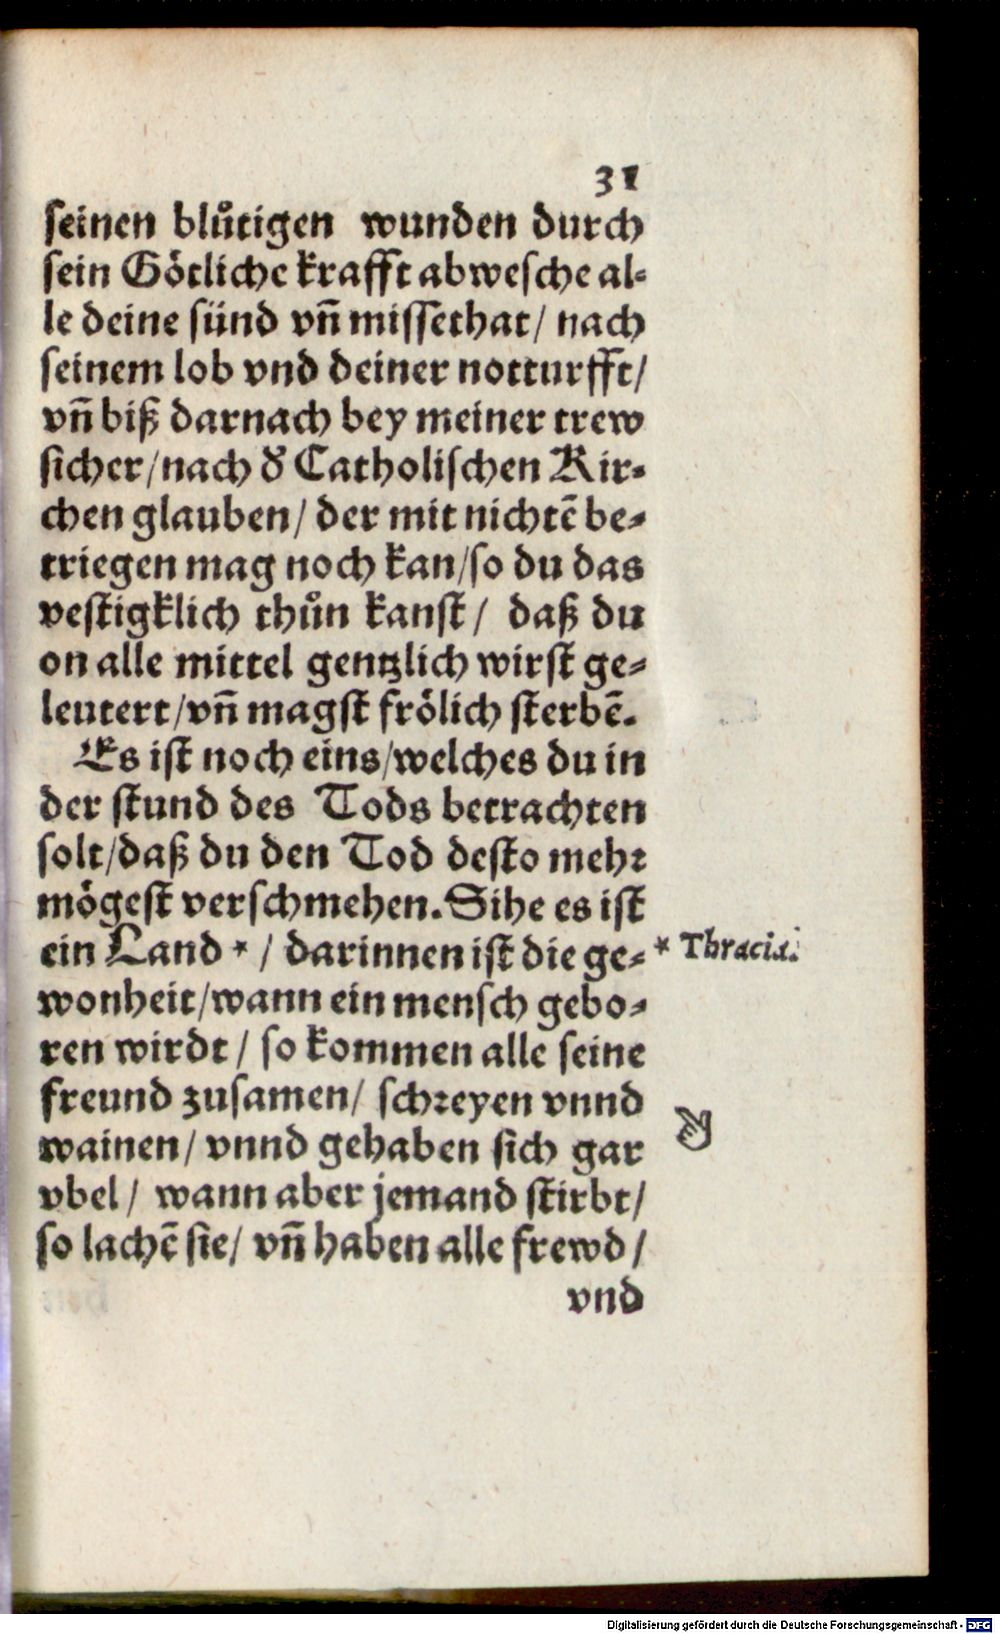 31
seinen blůtigen wunden durch
sein Götliche krafft abwesche al-
le deine sünd vn̄ missethat/ nach
seinem lob vnd deiner notturfft/
vn̄ biß darnach bey meiner trew
sicher/nach d̕ Catholischen Kir-
chen glauben/ der mit nichtē be-
triegen mag noch kan/so du das
vestigklich thůn kanst/ daß du
on alle mittel gentzlich wirst ge-
leutert/vn̄ magst frölich sterbē.
Es ist noch eins/welches du in
der stund des Tods betrachten
solt/daß du den Tod desto mehr
mögest verschmehen. Sihe es ist
ein Land * / darinnen ist die ge-
* Thracia.
wonheit/wann ein mensch gebo-
ren wirdt/ so kommen alle seine
freund zusamen/ schreyen vnnd
wainen/ vnnd gehaben sich gar
vbel/ wann aber jemand stirbt/
so lachē sie/ vn̄ haben alle frewd/
vnd
Digitalisierung gefördert durch die Deutsche Forschungsgemeinschaft - DFG